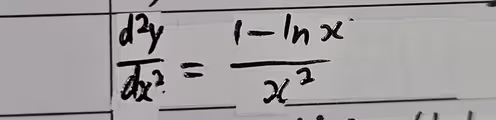 d²y/dx² = (1 - ln x)/x²